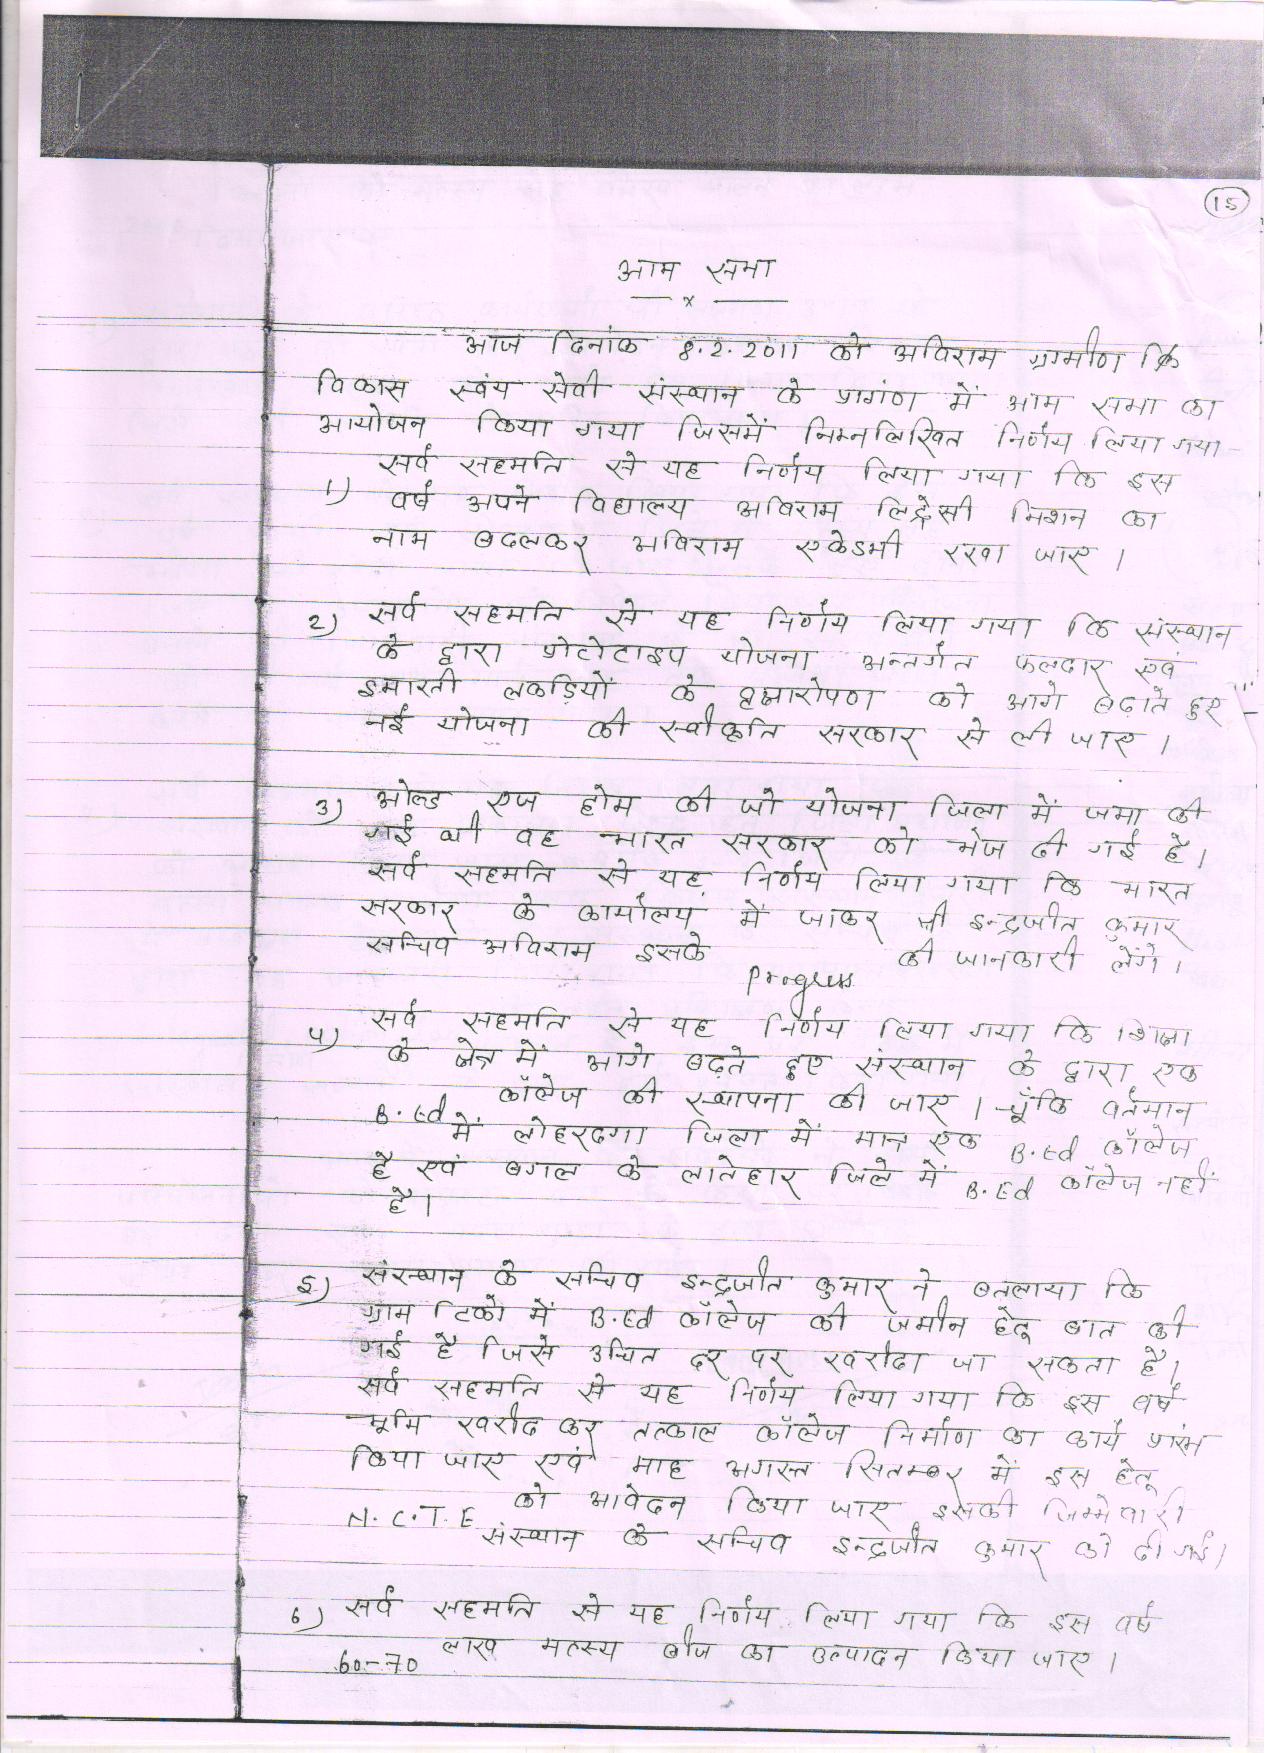 15
आम सभा
आज दिनांक 8.2.2011 को अविराम ग्रामीण
विकास स्वंय सेवी संस्थान के प्रागंण में आम सभा का
आयोजन किया गया जिसमें निम्नलिखित निर्णय लिया गया-
1) सर्व सहमति से यह निर्णय लिया गया कि इस
वर्ष अपने विद्यालय अविराम लिट्रेसी मिशन का
नाम बदलकर अविराम एकेडमी रखा जाए।
2) सर्व सहमति से यह निर्णय लिया गया कि संस्थान
के द्वारा प्रोटोटाइप योजना अन्तर्गत फलदार एवं
इमारती लकड़ियों के वृक्षारोपण को आगे बढ़ाते हुए
नई योजना की स्वीकृति सरकार से ली जाए।
3) ओल्ड एज होम की जो योजना जिला में जमा की
गई थी वह भारत सरकार को भेज दी गई है।
सर्व सहमति से यह निर्णय लिया गया कि भारत
सरकार के कार्यालय में जाकर श्री इन्द्रजीत कुमार
सचिव अविराम इसके progress की जानकारी लेंगे।
4) सर्व सहमति से यह निर्णय लिया गया कि शिक्षा
के क्षेत्र में आगे बढ़ते हुए संस्थान के द्वारा एक
B.Ed कॉलेज की स्थापना की जाए। चूँकि वर्तमान
में लोहरदगा जिला में मात्र एक B.Ed कॉलेज
है एवं बगल के लातेहार जिले में B.Ed कॉलेज नहीं
है।
5) संस्थान के सचिव इन्द्रजीत कुमार ने बतलाया कि
ग्राम टिको में B.Ed कॉलेज की जमीन हेतु बात की
गई है जिसे उचित दर पर खरीदा जा सकता है।
सर्व सहमति से यह निर्णय लिया गया कि इस वर्ष
भूमि खरीद कर तत्काल कॉलेज निर्माण का कार्य प्रारंभ
किया जाए एवं माह अगस्त सितम्बर में इस हेतू
N.C.T.E को आवेदन किया जाए इसकी जिम्मेवारी
संस्थान के सचिव इन्द्रजीत कुमार को दी गई।
6) सर्व सहमति से यह निर्णय लिया गया कि इस वर्ष
60-70 लाख मत्स्य बीज का उत्पादन किया जाए।